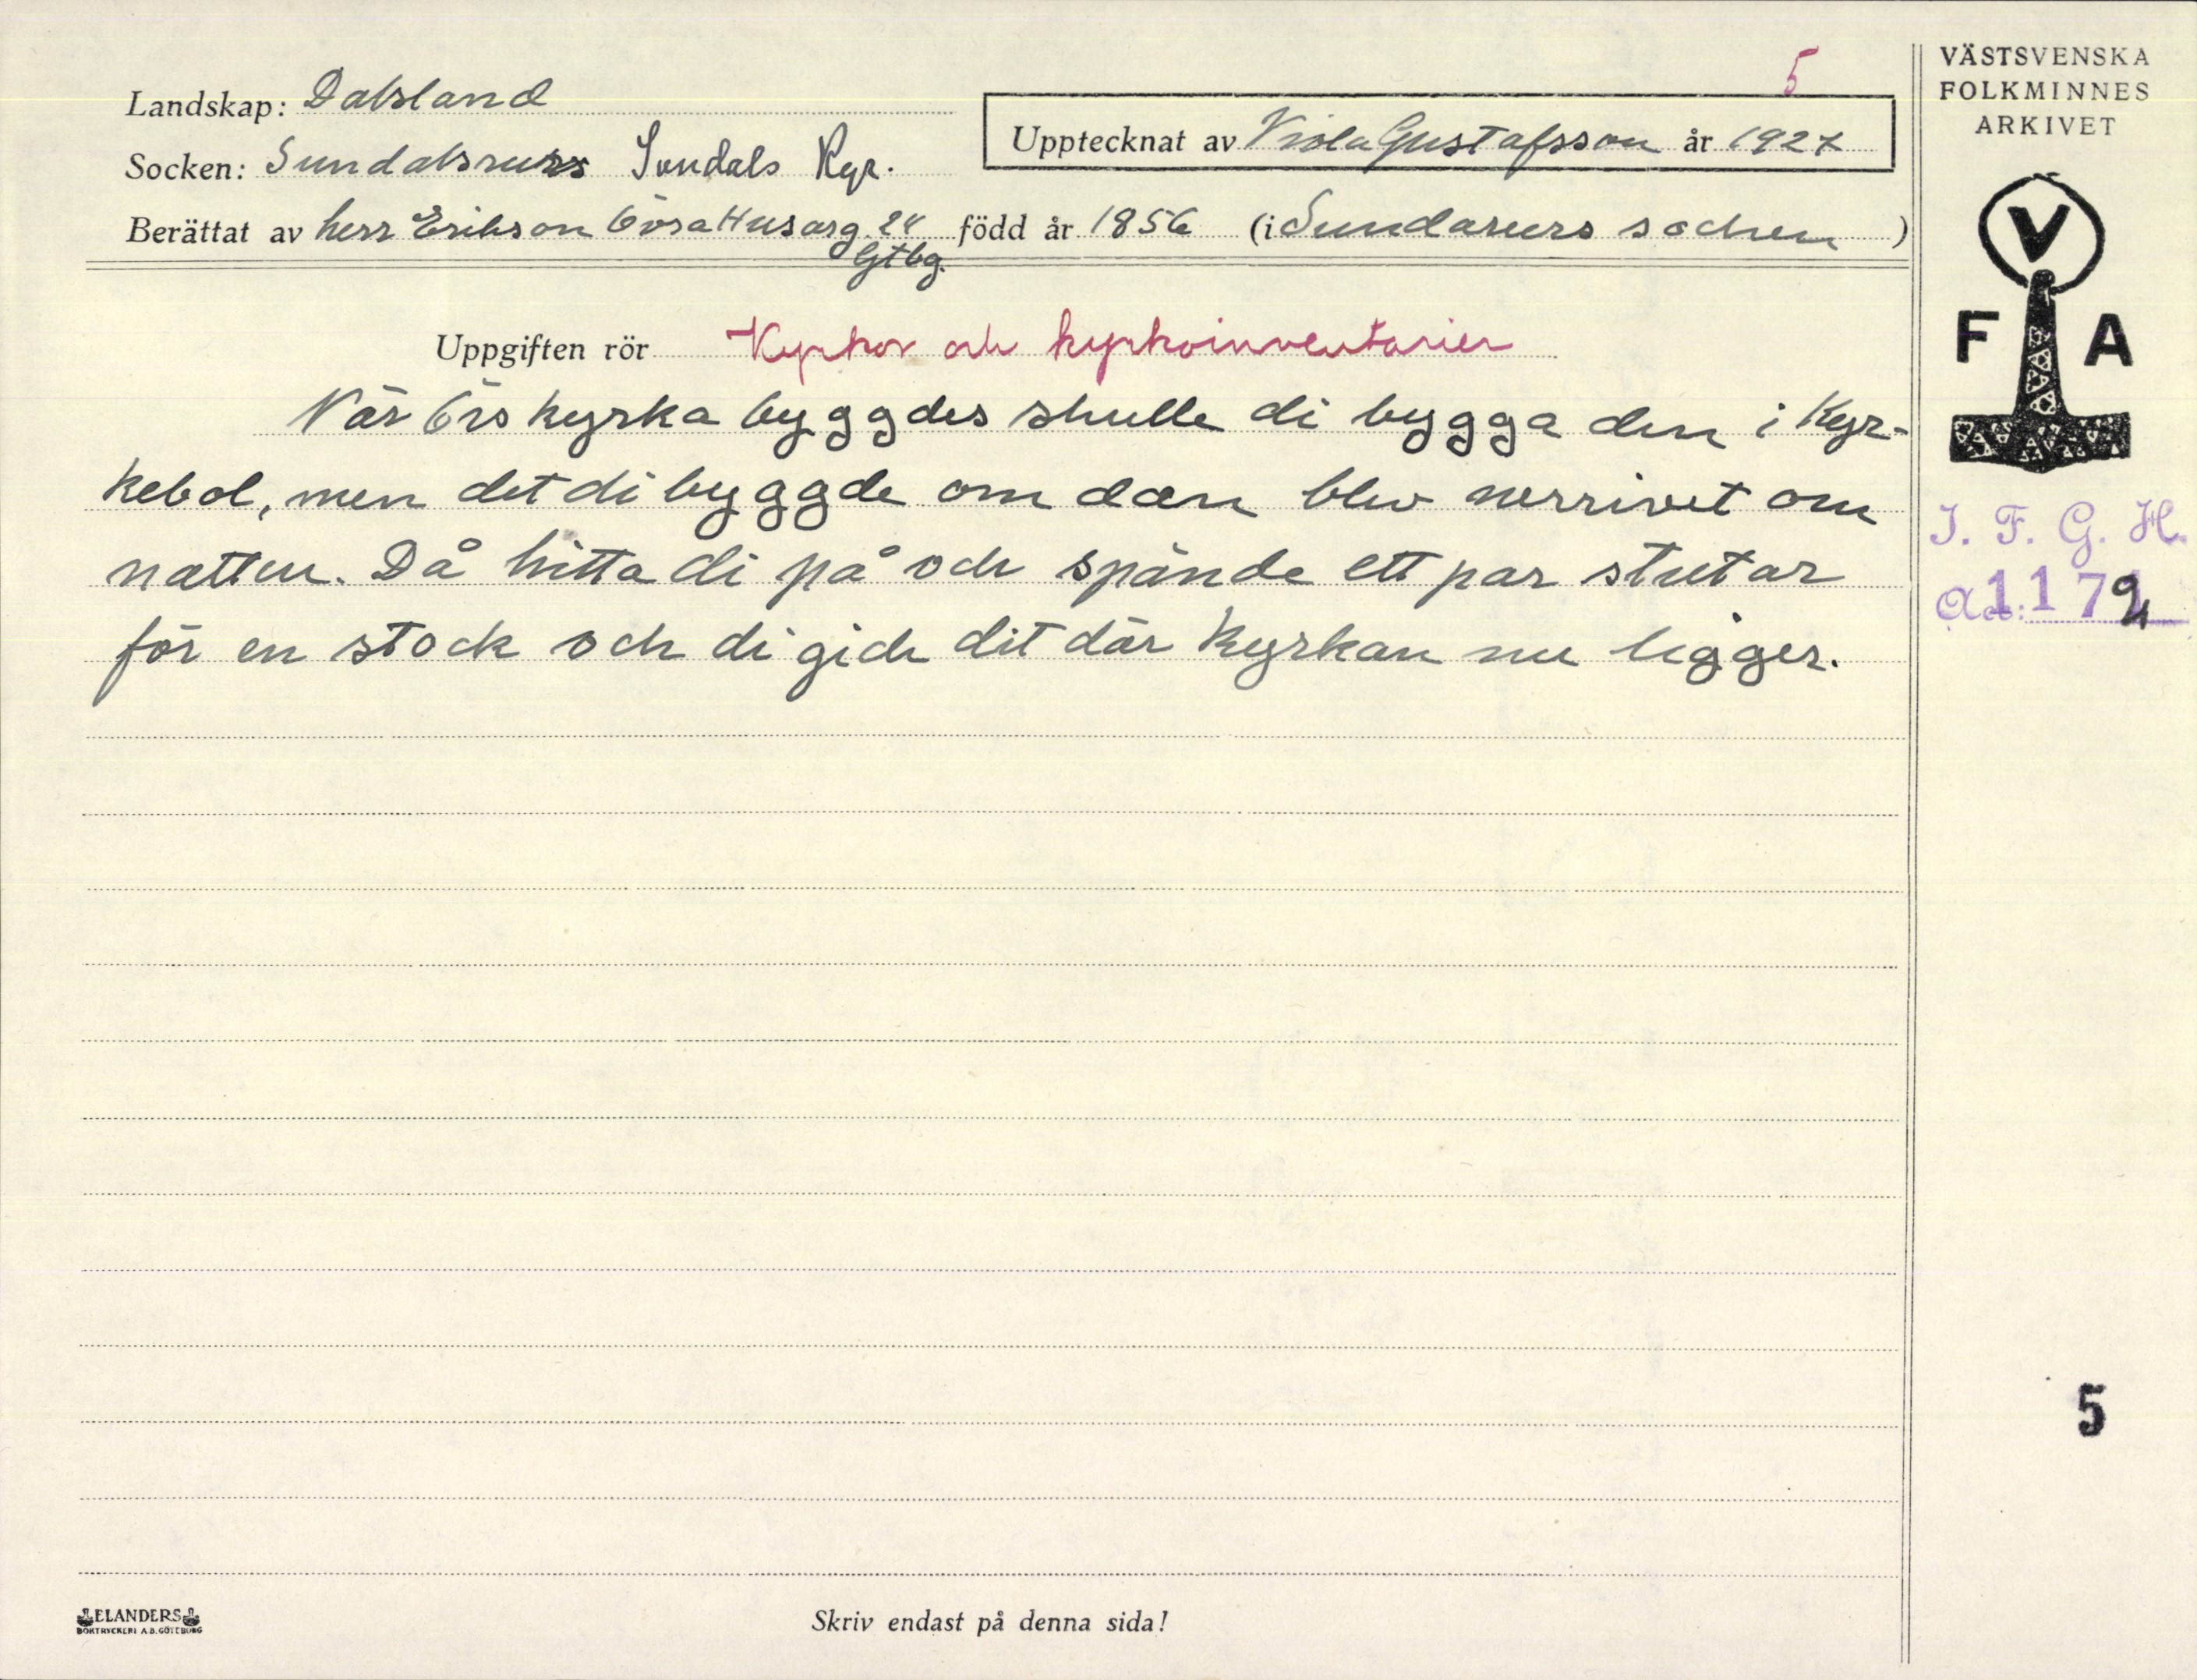 5
VÄSTSVENSKA
FOLKMINNES
ARKIVET
Landskap: Dalsland
Upptecknat av Viola Gustafsson år 1927
Socken: Sundals Ryr.
Berättat av herr Erikson Övra Husarg. 24 född år 1856 (i socken)
Gtbg.
V
F A
Uppgiften rör Kyrkor och kyrkoinventarier
När Örs kyrka byggdes skulle di bygga den i Kyr-
kebol, men det di byggde om dan blev nerrivet om
natten. Då hitta di på och spände ett par stutar
för en stock och di gick dit där kyrkan nu ligger.
I. F. G. H.
1172
5
ELANDERS
BOKTRYCKERI A.B. GÖTEBORG
Skriv endast på denna sida!